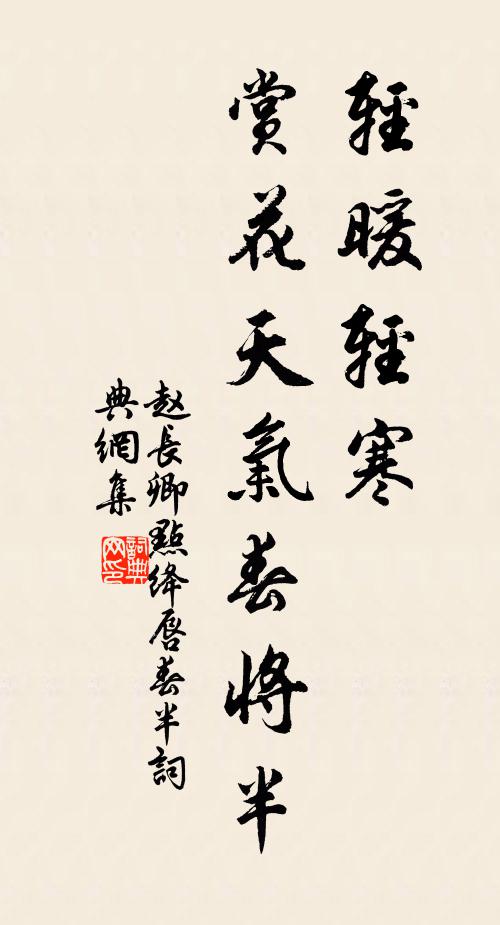 輕暖輕寒
賞花天氣春將半
赵長卿點絳唇春半詞
典網集
詞典
网印